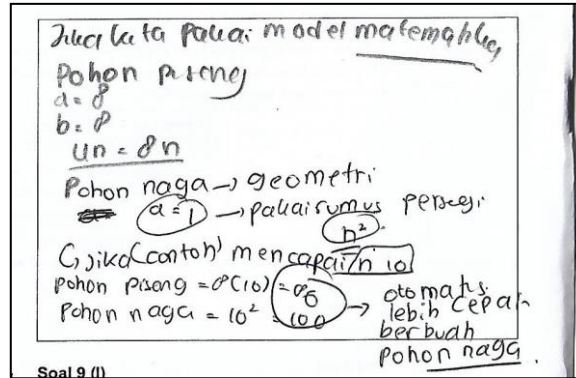 Jika kita pakai model matematika
Pohon piseng
a = 8
b = 8
Un = 8n
Pohon naga → geometri
a = 1 → pakai rumus persegi
n².
Jika (contoh) mencapai n 10
pohon piseng = 8(10) = 80
Pohon naga = 10² = 100
→ otomatis
lebih cepat
berbuah
pohon naga.
Soal 9 (l)